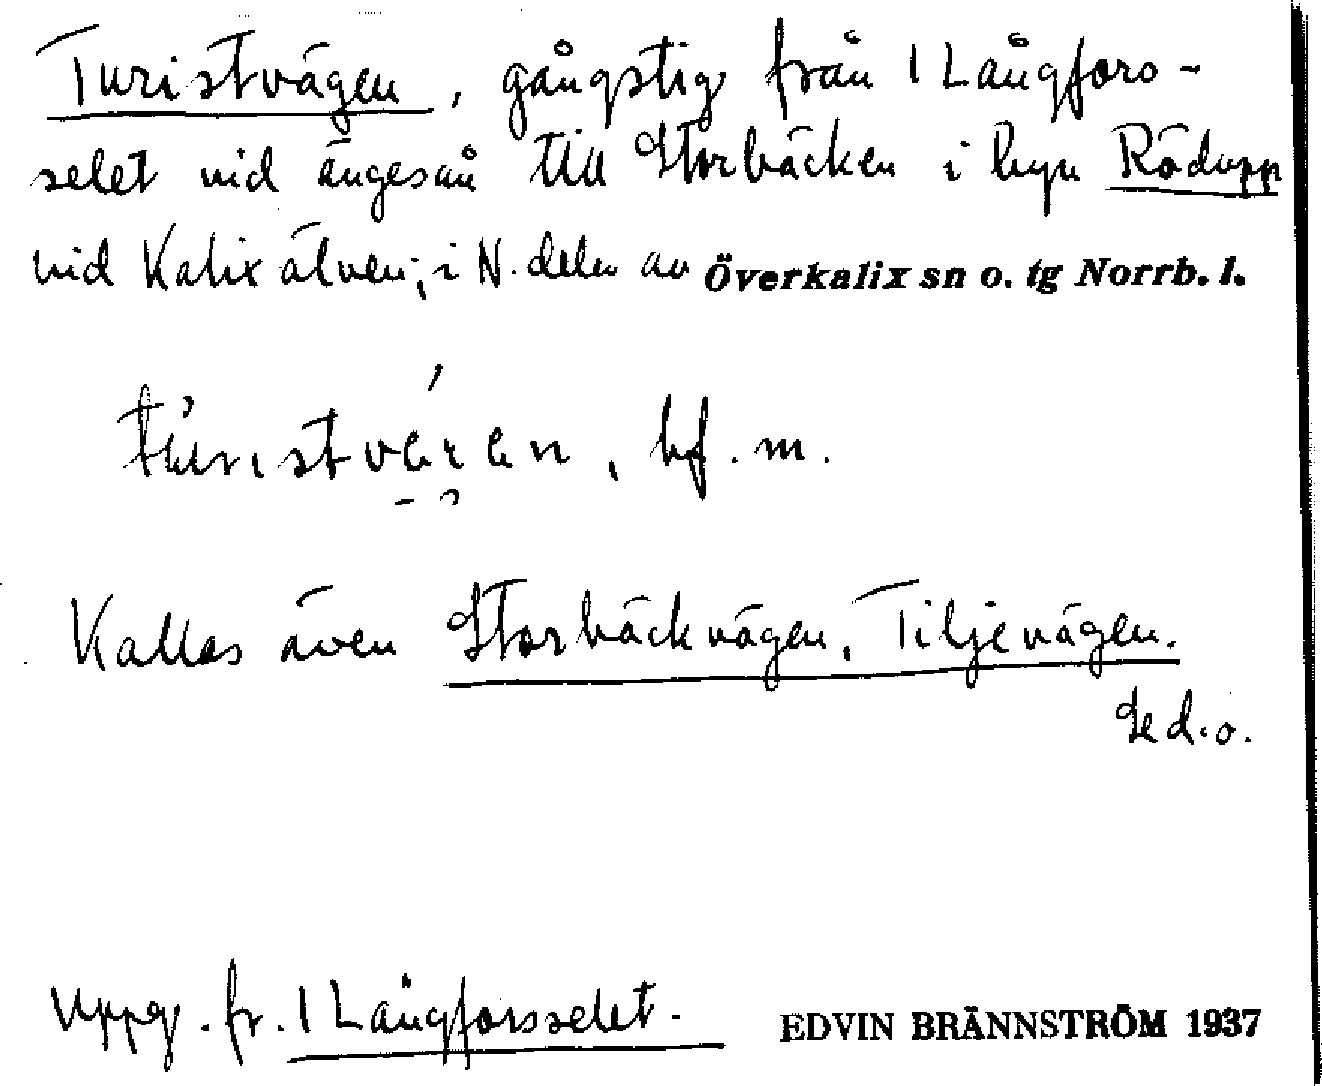 Turistvägen, gångstig från 1 Långfors-
selet vid ängesån till Storbäcken i byn Rödupp
vid Kalix älven; i N. delen av Överkalix sn o. tg Norrb. l.
bf. m.
Kallas även Storbäckvägen, Tiljevägen.
Se d.o.
Uppg. fr. 1 Långforsselet.
EDVIN BRÄNNSTRÖM 1937